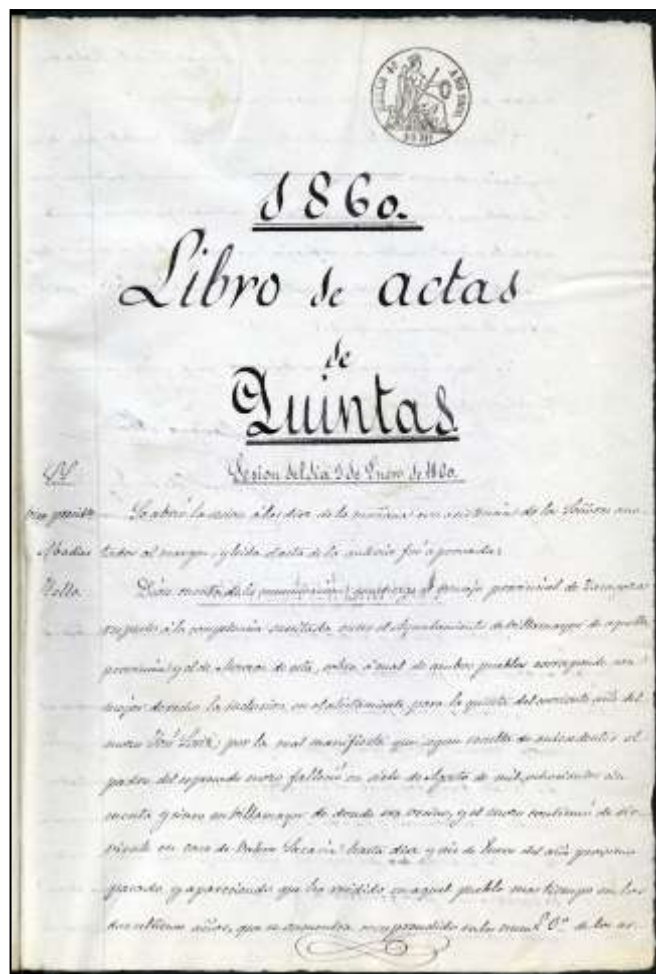 1860.
Libro de actas
de
Quintas
Sesion del dia 9 de Enero de 1860.
Se abrió la sesion á las diez de la mañana con asistencia de los Señores ano-
Abadias tados al margen, y leida el acta de la anterior fué aprobada.
Vello. Dióse cuenta de la comunicacion del consejo provincial de Zaragoza
respecto á la competencia suscitada entre el Ayuntamiento de Villamayor de aquella
provincia y el de de esta, sobre á cual de ambos pueblos corresponde con
mejor derecho la inclusion en el alistamiento para la quinta del corriente año del
mozo José por la cual manifiesta que segun resulta de antecedentes el
padre del espresado mozo falleció en siete de Agosto de mil ochocientos cin-
cuenta y cinco en Villamayor de donde era vecino, y el mozo continuó de sir-
viente en casa de hasta diez y seis de Enero del año proximo
pasado, y apareciendo que ha residido en aquel pueblo mas tiempo en los
dos ultimos años, que se encuentra comprendido en los de los ar-